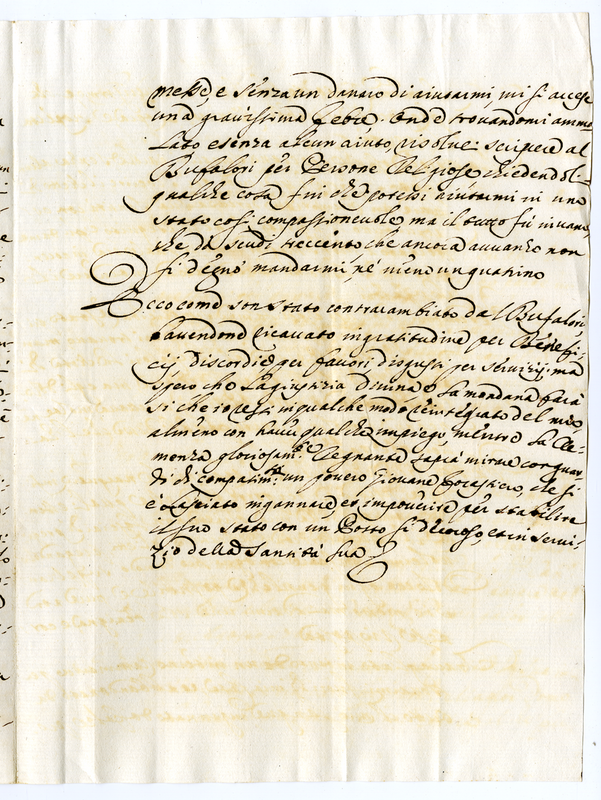 messe, e senza un danaro di aiutarmi, mi si accese
una gravissima febre. Onde trovandomi amma-
lato e senza alcun aiuto, risolvei scrivere al
Bufalori per Persone Religiose chiedendoli
qualche cosa fui che potessi aiutarmi in uno
stato così compassionevole, ma il tutto fù invano,
che da scudi treccento che ancora avvanzo non
si degnò mandarmi, nè meno un quatrino
Ecco come son stato contracambiato dal Bufalori,
havendone ricavato ingratitudine per Benefi-
cij, discordie per favori disgusti per servizij; ma
spero che la giustizia divina, e la mondana farà
si che io resti in qualche modo reintegrato del mio
almeno con havere qualche impiego, mentre la Cle-
menza gloriosam.te Regnante saprà mirare con guar-
di di compatim.to un povero Giovane forastiero, che si
è lasciato ingannare, et impoverire per stabilire
il suo stato con un Posto si decoroso, et in servi-
zio della Santità sua